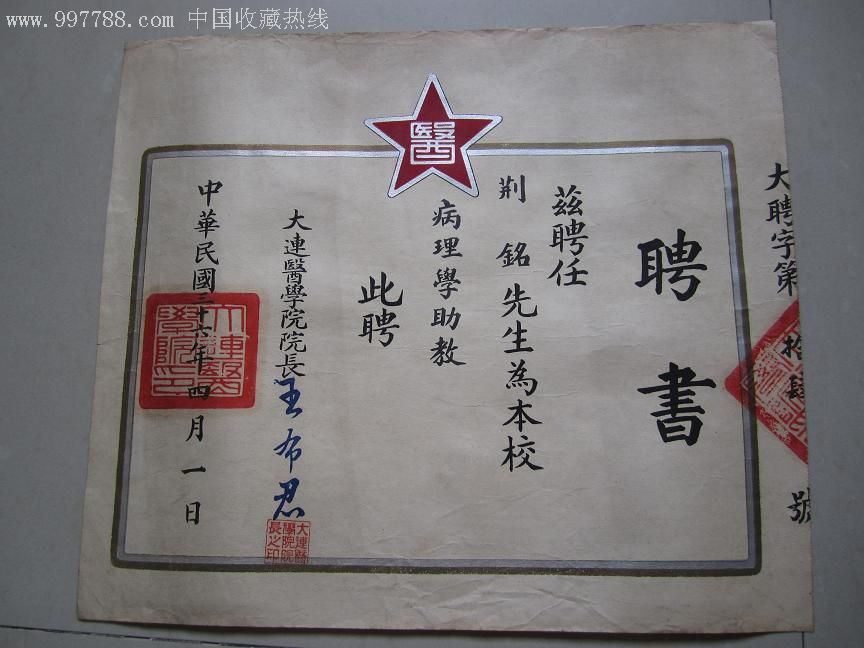 www.997788.com 中国收藏热线
醫
大聘字第拾肆號
聘書
茲聘任
荆銘先生為本校
病理學助教
此聘
大連醫學院院長王布君
大連醫學院院長之印
中華民國三十六年四月一日
大連醫學院印